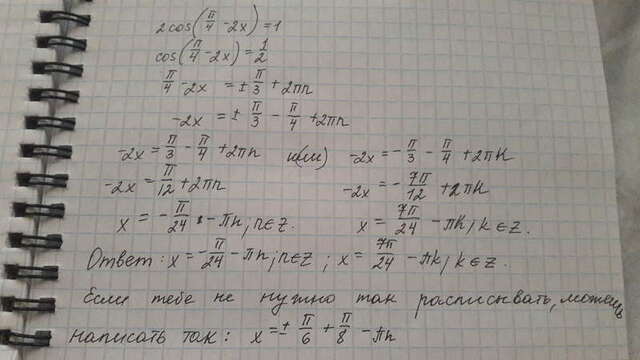 2cos(π/4 - 2x) = 1
cos(π/4 - 2x) = 1/2
π/4 - 2x = ± π/3 + 2πn
-2x = ± π/3 - π/4 + 2πn
-2x = π/3 - π/4 + 2πn или -2x = - π/3 - π/4 + 2πk
-2x = π/12 + 2πn -2x = - 7π/12 + 2πk
x = - π/24 - πn; n∈Z. x = 7π/24 - πk, k∈Z.
Ответ: x = - π/24 - πn; n∈Z; x = 7π/24 - πk, k∈Z.
Если тебе не нужно так расписывать, можешь
написать так: x = ± π/6 + π/8 - πn